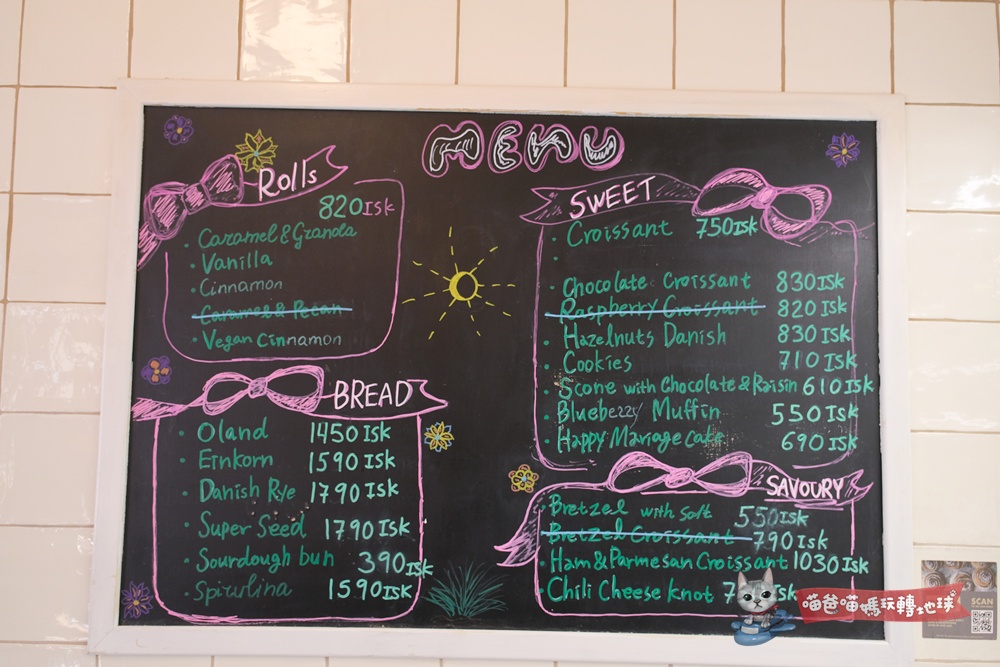 MENU
Rolls
820 ISK
Caramel & Granola
Vanilla
Cinnamon
Caramel & Pecan
Vegan Cinnamon
BREAD
Oland 1450 ISK
Einkorn 1590 ISK
Danish Rye 1790 ISK
Super Seed 1790 ISK
Sourdough bun 390 ISK
Spirulina 1590 ISK
SWEET
Croissant 750 ISK
Chocolate Croissant 830 ISK
Raspberry Croissant 820 ISK
Hazelnuts Danish 830 ISK
Cookies 710 ISK
Scone with Chocolate & Raisin 610 ISK
Blueberry Muffin 550 ISK
Happy Mariage Cake 690 ISK
SAVOURY
Bretzel with Salt 550 ISK
Bretzel Croissant 790 ISK
Ham & Parmesan Croissant 1030 ISK
Chili Cheese knot
喵爸喵媽玩轉地球
SCAN